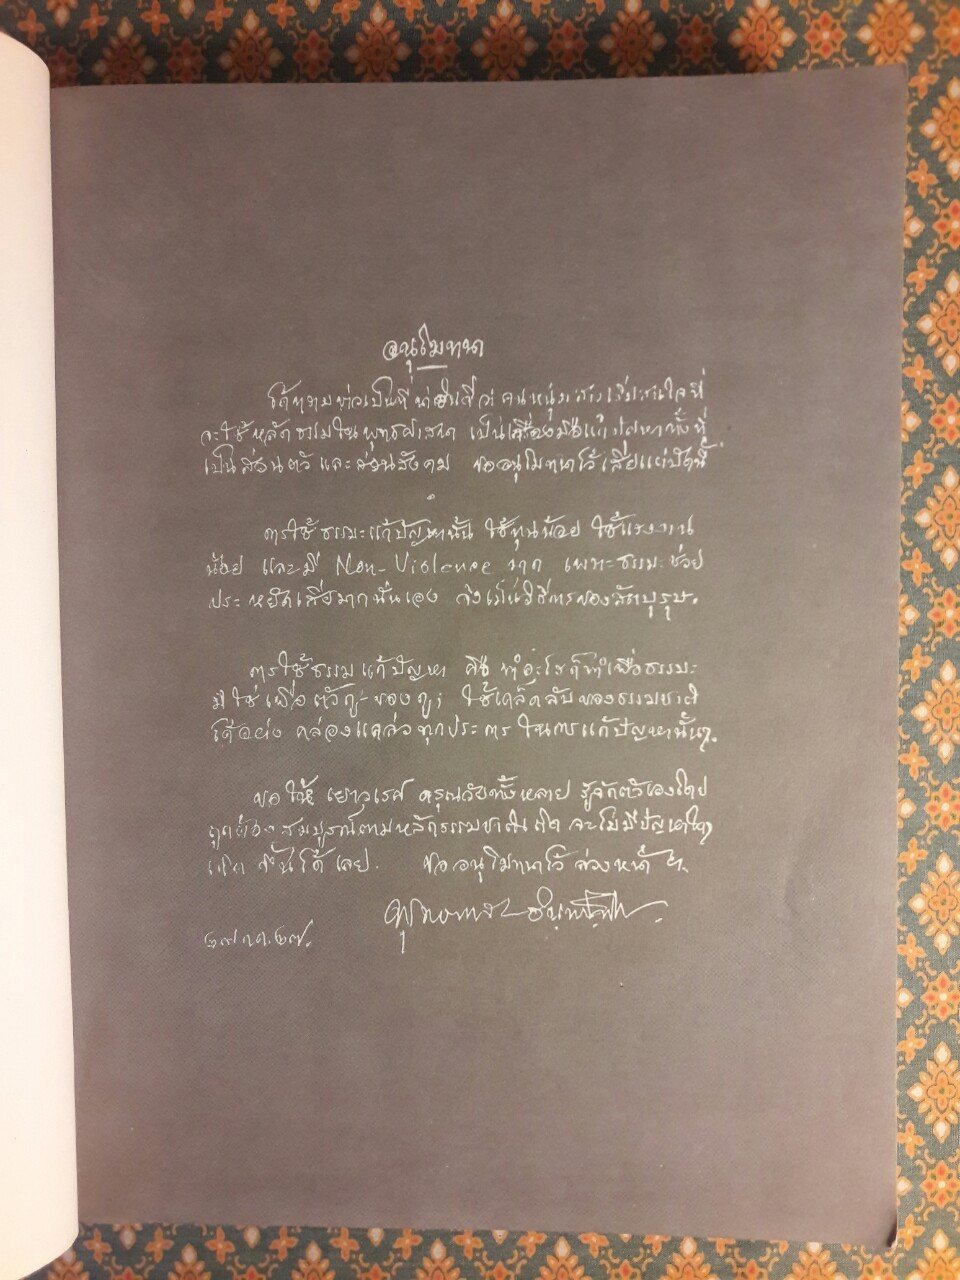 อนุโมทนา
ได้ทราบข่าวเป็นที่น่ายินดีว่า คนหนุ่มสาวเริ่มสนใจที่
จะใช้หลักธรรมในพุทธศาสนา เป็นเครื่องมือแก้ปัญหาทั้งที่
เป็นส่วนตัว และส่วนสังคม ขออนุโมทนาไว้เสียแต่บัดนี้
การใช้ธรรมะแก้ปัญหานั้น ใช้ทุนน้อย ใช้แรงงาน
น้อย และมี Non-Violence มาก เพราะธรรมะช่วย
ประหยัดเสียมากนั่นเอง จึงเป็นวิธีการของสัตบุรุษ.
การใช้ธรรมแก้ปัญหา คือ ทำอะไรก็ทำเพื่อธรรมะ
มิใช่เพื่อตัวกู-ของกู; ใช้เคล็ดลับของธรรมชาติ
ได้อย่าง คล่องแคล่วทุกประการ ในการแก้ปัญหานั้นๆ.
ขอให้ เยาวเรศ ดรุณวัยทั้งหลาย รู้จักตัวเองโดย
ถูกต้อง สมบูรณ์ตามหลักธรรมชาติเถิด จะไม่มีปัญหาใดๆ
เกิดขึ้นได้เลย. ขออนุโมทนาไว้ล่วงหน้า
พุทธทาส อินทปัญโญ
๒๗ ก.ค. ๒๗.